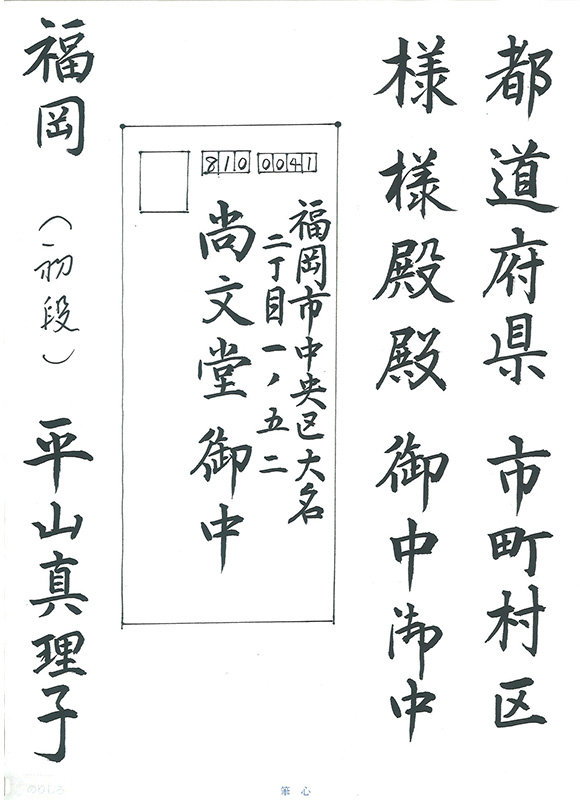 都道府県 市町村区
様様殿殿 御中御中
810 0041
福岡市中央区大名
二丁目一ノ五二
尚文堂 御中
福岡 (初段) 平山真理子
のりしろ
筆心